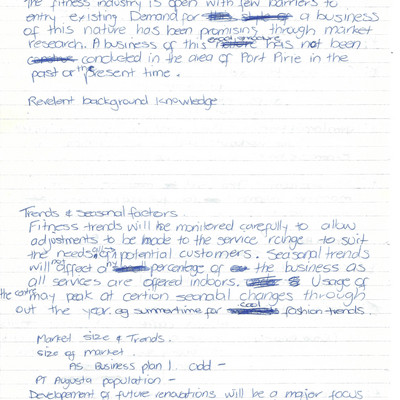 The fitness industry is open with few barriers to
entry existing. Demand for a business
of this nature has been promising through market
research. A business of this nature has not been
conducted in the area of Port Pirie in the
past or the present time.
Revelent background knowledge
Trends & seasonal factors.
Fitness trends will be monitered carefully to allow
adjustments to be made to the service range to suit
the needs of all potential customers. Seasonal trends
will not affect any percentage of the business as
all services are offered indoors. Usage of
the centre may peak at certion seanabl changes through
out the year. eg summertime for cool fashion trends.
Market size & Trends.
size of market.
As. Business plan 1. add -
PT Augusta population -
Developement of future renovations will be a major focus